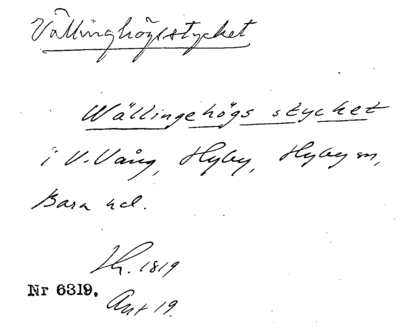 Vällinghögsstycket
Wällingehögs stycket
i V. Vång, Hyby, Hyby sn,
Bara hd.
Lh. 1819
Nr 6319.
Akt 19.